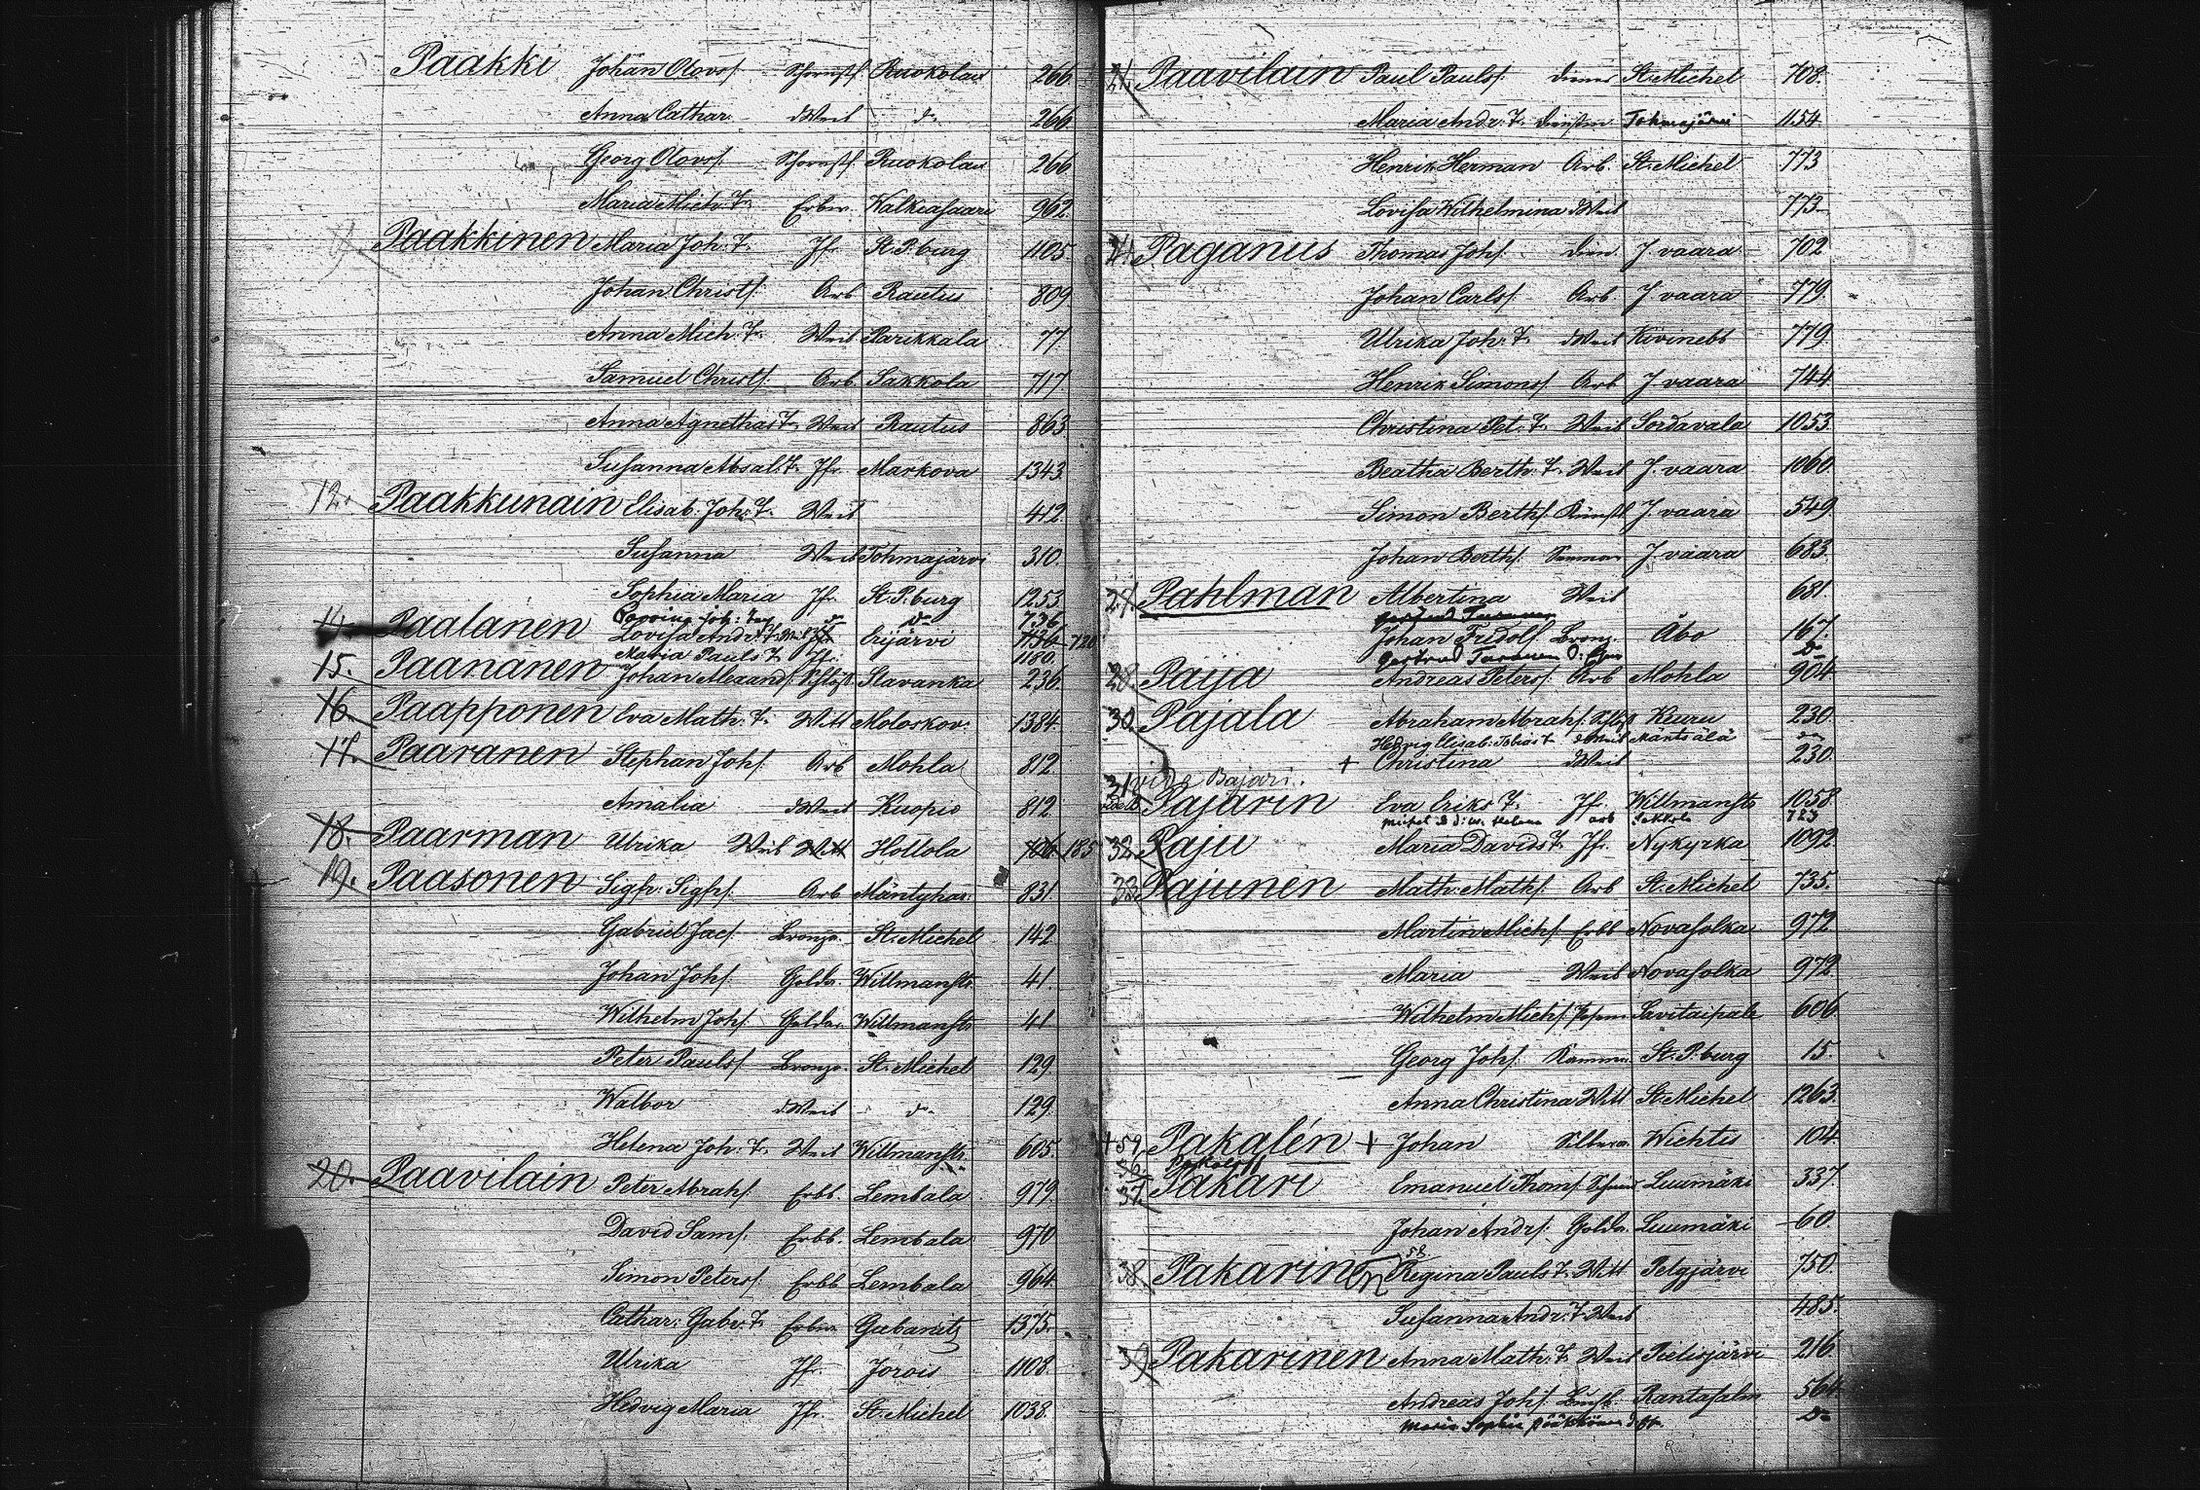 Paakki Johan Olovs/. Schornstf Ruokolax 266.
Anna Cathar. dWeib do 266.
Georg Olovs/. Schornstf Ruokolax 266
Maria Mich. T. Erbw. Kalkiasaari 962.
Paakkinen Maria Joh. T. Jfr. St. P.burg 1105.
Johan Christ/. Arb Rautus 809
Anna Mich. T. Weib Parikkala 77
Samuel Christ/. Arb. Sakkola 717.
Anna Agnetha T. Weib Rautus 863.
Susanna Absal. T. Jfr. Markova 1343.
12. Paakkunain Elisab. Joh. T. Weib 412.
Susanna Weib Tohmajärvi 310.
Sophia Maria Jfr. St. P.burg 1253.
Joh: do 736.
14. Paalanen Lovisa Andr. T. Weib Eujärvi 1134 720
Maria Pauls T. Jfr. 1180.
15. Paananen Johan Alexand/. Slavanka 236.
16. Paapponen Eva Math. T. Witt Moloskov. 1384.
17. Paaranen Stephan Joh/. Arb Mohla 812.
Amalia dWeib Kuopio 812.
18. Paarman Ulrika Weib Witt Hollola 185
19. Paasonen Sigfr. Sigfr/. Arb Mäntyhar. 831.
Gabriel Jac/. Bronzr. St. Michel 142
Johan Joh/. Golda. Willmanst. 41.
Wilhelm Joh/. Golda. Willmanst. 41
Peter Pauls/. Bronzr. St. Michel 129.
Walbor dWeib do 129.
Helena Joh. T. Weib Willmanst. 605.
20. Paavilain Peter Abrah/. Erbb. Lembala 979.
David Sam/. Erbb. Lembala 970
Simon Peters/. Erbb Lembala 964
Cathar. Gabr. T. Erbw. Gubanitz 1375.
Ulrika Jfr. Jorois 1108.
Hedvig Maria Jfr. St. Michel 1038.
21. Paavilain Paul Pauls/. Diener St. Michel 708.
Maria Andr. T. Tohmajärvi 1154.
Henrik Herman Arb. St. Michel 773
Lovisa Wilhelmina dWeib 773
Paganus Thomas Joh/. Dien. J. vaara 702
Johan Carls/. Arb. J. vaara 779.
Ulrika Joh. T. dWeib Kivinebb 779.
Henrik Simons/. Arb J. vaara 744
Christina Pet. T. Weib Sordavala 1053.
Beatha Berth. T. Weib J. vaara 1060.
Simon Berth/. J. vaara 549
Johan Berth/. J. vaara 683.
27. Pahlman Albertina Weib 681.
Johan Fridolf Bronz. Åbo 167.
Gertrud Turunen do
28. Paija Andreas Peters/. Arb Mohla 904
30. Pajala Abraham Abrah/. Keuru 230
Hedvig Elisab. Tobias T. dWeib Mäntsälä do
+ Christina dWeib 230.
vide Bajari.
31. Pajarin Eva Eriks T. Jfr. Willmansts 1058
Michel Helena arb Sakkola 723
32. Paju Maria Davids T. Jfr. Nykyrka 1092.
33. Pajunen Math. Math/. Arb St. Michel 735.
Martin Mich/. Erbb Novasolka 972
Maria Weib Novasolka 972.
Wilhelm Mich/. Savitaipale 606.
Georg Joh/. Kamma. St. P.burg 15.
Anna Christina Witt St. Michel 1263.
+ 59. Pakalén + Johan Silbera. Wichtis 104.
36.
37. Pakari Emanuel Thom/. Luumäki 337.
Johan Andr/. Golda. Luumäki 60.
58.
38. Pakarinen Regina Pauls T. Witt Pelgjärvi 750.
Susanna Andr. T. Weib 485.
39. Pakarinen Anna Math. T. Weib Pielisjärvi 216
Andreas Joh/. Rantasalm 564
Maria Sophia do